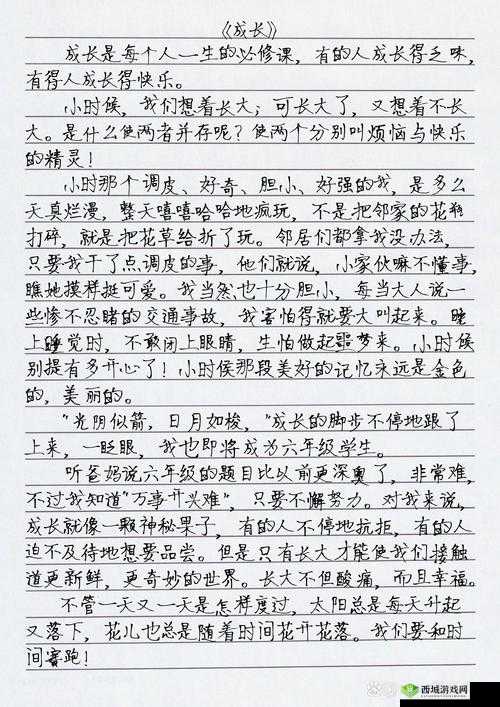 《成长》
成长是每个人一生的必修课，有的人成长得乏味，
有得人成长得快乐。
小时候，我们想着长大；可长大了，又想着不长
大。是什么使两者并存呢？使两个分别叫烦恼与快乐
的精灵！
小时那个调皮、好奇、胆小、好强的我，是多么
天真烂漫，整天嘻嘻哈哈地疯玩，不是把邻家的花瓶
打碎，就是把花草给折了玩。邻居们都拿我没办法，
只要我干了点调皮的事，他们就说，小家伙嘛不懂事，
瞧她摸样挺可爱。我当然也十分胆小，每当大人说一
些惨不忍睹的交通事故，我害怕得就要大叫起来。晚
上睡觉时，不敢闭上眼睛，生怕做起噩梦来。小时候
别提有多开心了！小时侯那段美好的记忆永远是金色
的，美丽的。
"光阴似箭，日月如梭，"成长的脚步不停地跟了
上来，一眨眼，我也即将成为六年级学生。
听爸妈说六年级的题目比以前更深奥了，非常难，
不过我知道"万事开兴难"，只要不懈努力。对我来说，
成长就像一颗神秘果子，有的人不停地抗拒，有的人
迫不及待地想要品尝。但是只有长大才能使我们接触
道更新鲜，更奇妙的世界。长大不但酸痛，而且幸福。
不管一天又一天是怎样度过，太阳总是每天升起
又落下，花儿也总是随着时间花开花落。我们要和时
间赛跑！
西城游戏网